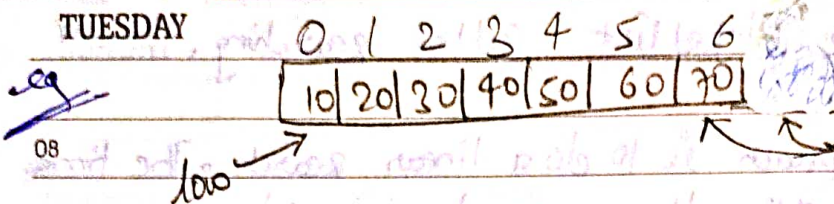 TUESDAY
0 1 2 3 4 5 6
eg
10 20 30 40 50 60 70
08
low